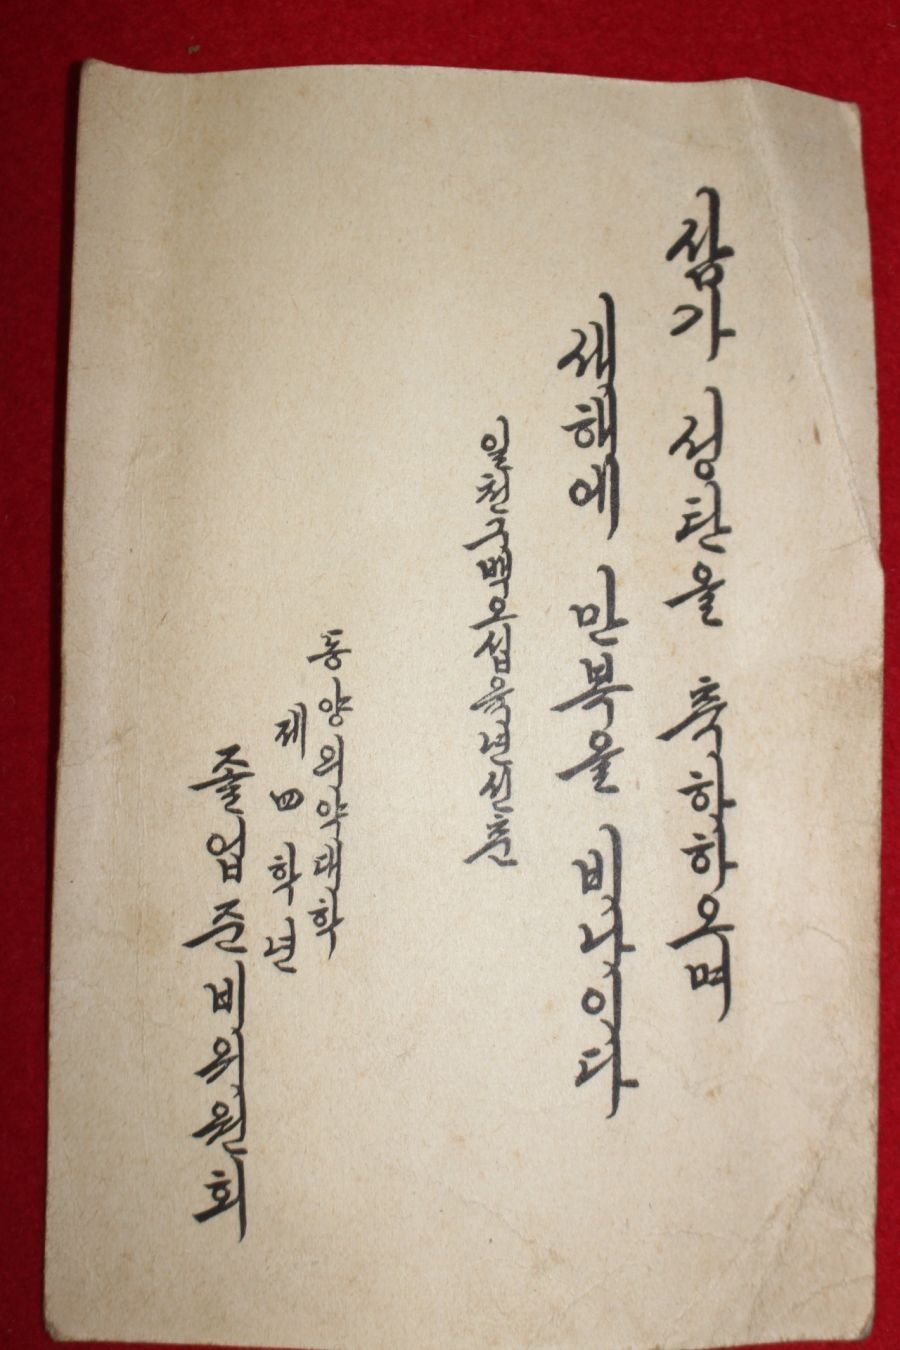 삼가 성탄을 축하하오며
세해에 만복을 비나이다
일천구백오십육년신춘
동양의약대학
제四학년
졸업준비위원회